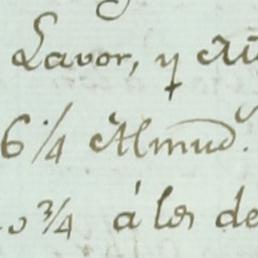 Lavor, y
6 1/4 Almud.^s
3/4 á los de